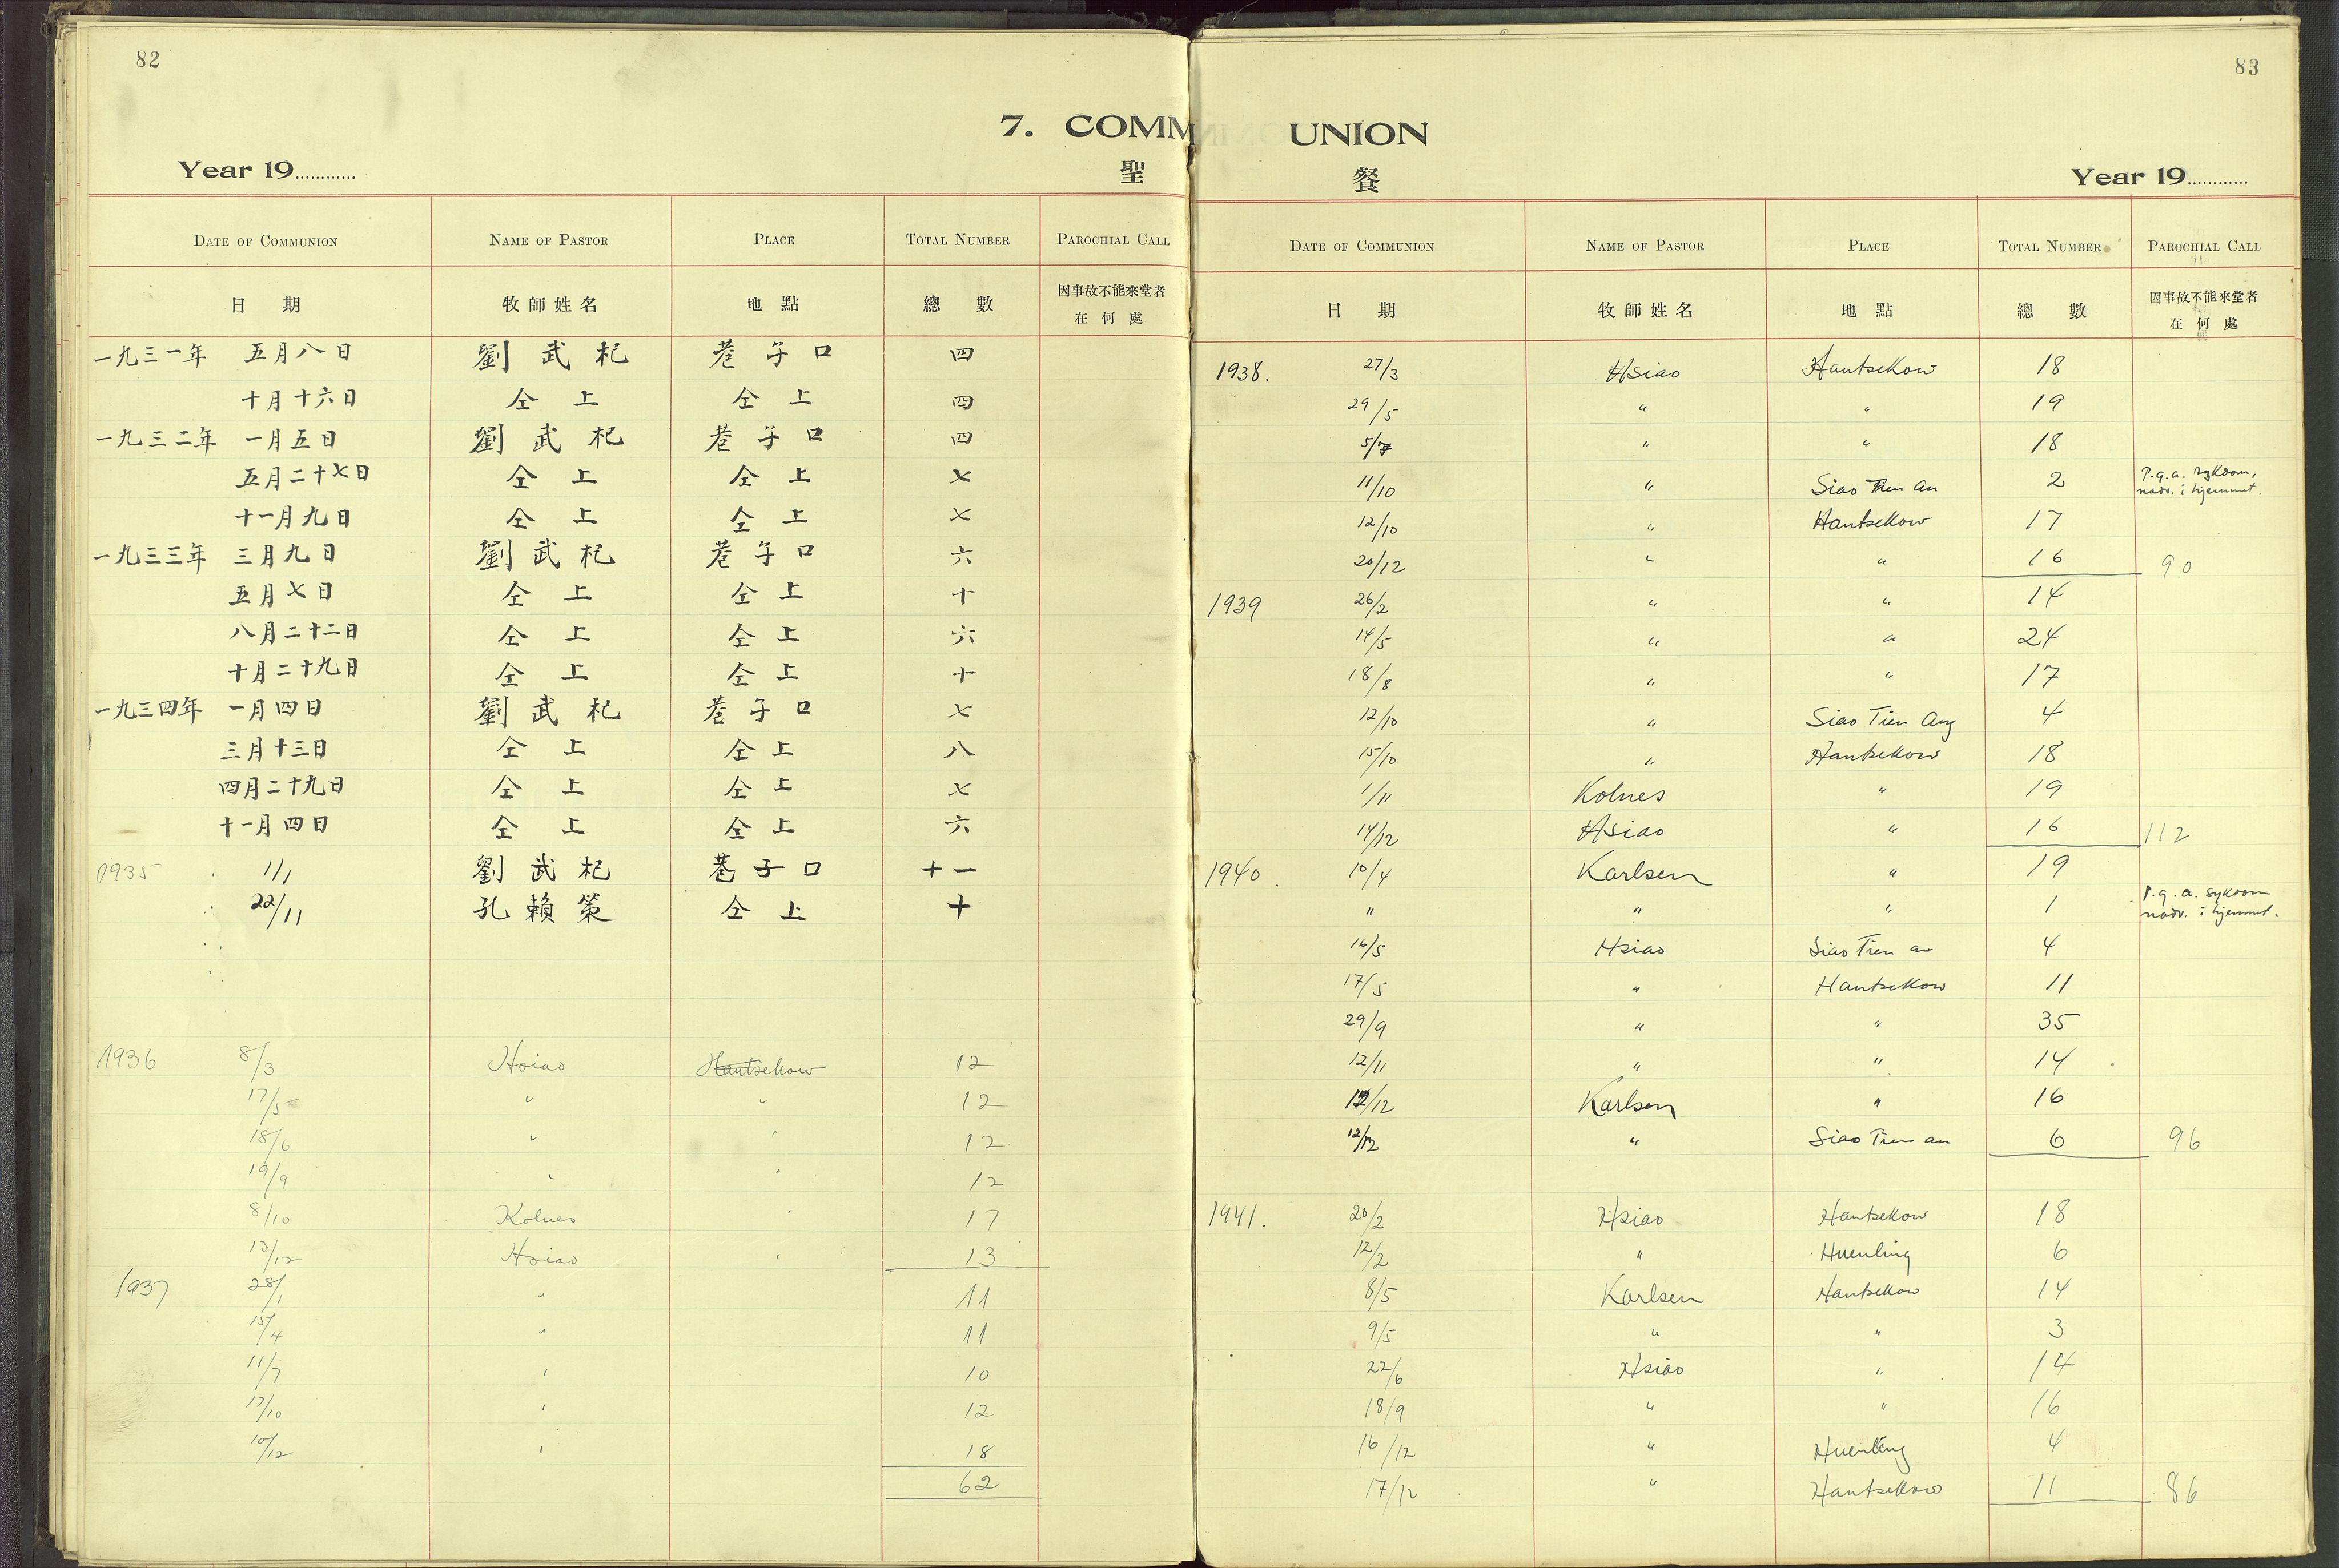 82
7. COMM
Year 19............
聖
DATE OF COMMUNION NAME OF PASTOR PLACE TOTAL NUMBER PAROCHIAL CALL
日期 牧師姓名 地點 總數 因事故不能來堂者
在何處
一九三一年 五月八日 劉武杞 巷子口 四
十月十六日 仝上 仝上 四
一九三二年 一月五日 劉武杞 巷子口 四
五月二十七日 仝上 仝上 七
十一月九日 仝上 仝上 七
一九三三年 三月九日 劉武杞 巷子口 六
五月七日 仝上 仝上 十
八月二十二日 仝上 仝上 六
十月二十九日 仝上 仝上 十
一九三四年 一月四日 劉武杞 巷子口 七
三月十三日 仝上 仝上 八
四月二十九日 仝上 仝上 七
十一月四日 仝上 仝上 六
1935 1/1 劉武杞 巷子口 十一
22/11 孔賴策 仝上 十
1936 8/3 Hsiao Hantsekow 12
17/5 " " 12
18/6 " " 12
19/9 " " 12
8/10 Kolnes " 17
13/12 Hsiao " 13
1937 28/1 " 11
15/4 " 11
11/7 " 10
17/10 " 12
10/12 " 18
62
83
UNION
餐
Year 19............
DATE OF COMMUNION NAME OF PASTOR PLACE TOTAL NUMBER PAROCHIAL CALL
日期 牧師姓名 地點 總數 因事故不能來堂者
在何處
1938. 27/3 Hsiao Hantsekow 18
29/5 " " 19
5/7 " " 18
11/10 " Siao Tien an 2 P.g.a. sykdom,
nadv. i hjemmet.
12/10 " Hantsekow 17
20/12 " " 16 90
1939 26/2 " " 14
14/5 " " 24
18/8 " " 17
12/10 " Siao Tien Ang 4
15/10 " Hantsekow 18
1/11 Kolnes " 19
14/12 Hsiao " 16 112
1940. 10/4 Karlsen " 19
" " " 1 P.g.a. sykdom
nadv. i hjemmet.
16/5 Hsiao Siao Tien an 4
17/5 " Hantsekow 11
29/9 " " 35
12/11 " " 14
12/12 Karlsen " 16
12/12 " Siao Tien an 6 96
1941. 20/2 Hsiao Hantsekow 18
12/2 " Huenling 6
8/5 Karlsen Hantsekow 14
9/5 " " 3
22/6 Hsiao " 14
18/9 " " 16
16/12 " Huenling 4
17/12 " Hantsekow 11 86